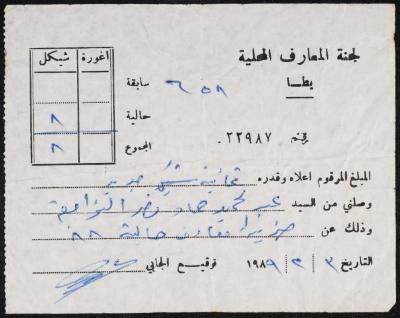 لجنة المعارف المحلية
يطا
اغورة شيكل
سابقة ٦٥٨
حالية ٨
المجموع ٨
رقم ٢٢٩٨٧
المبلغ المرقوم اعلاه وقدره ثمانية شيكل جديد
وصلني من السيد عبد محمد حماد
وذلك عن معارف حالية ٨٨
التاريخ ٣ / ٢ / ١٩٨٩ توقيع الجابي